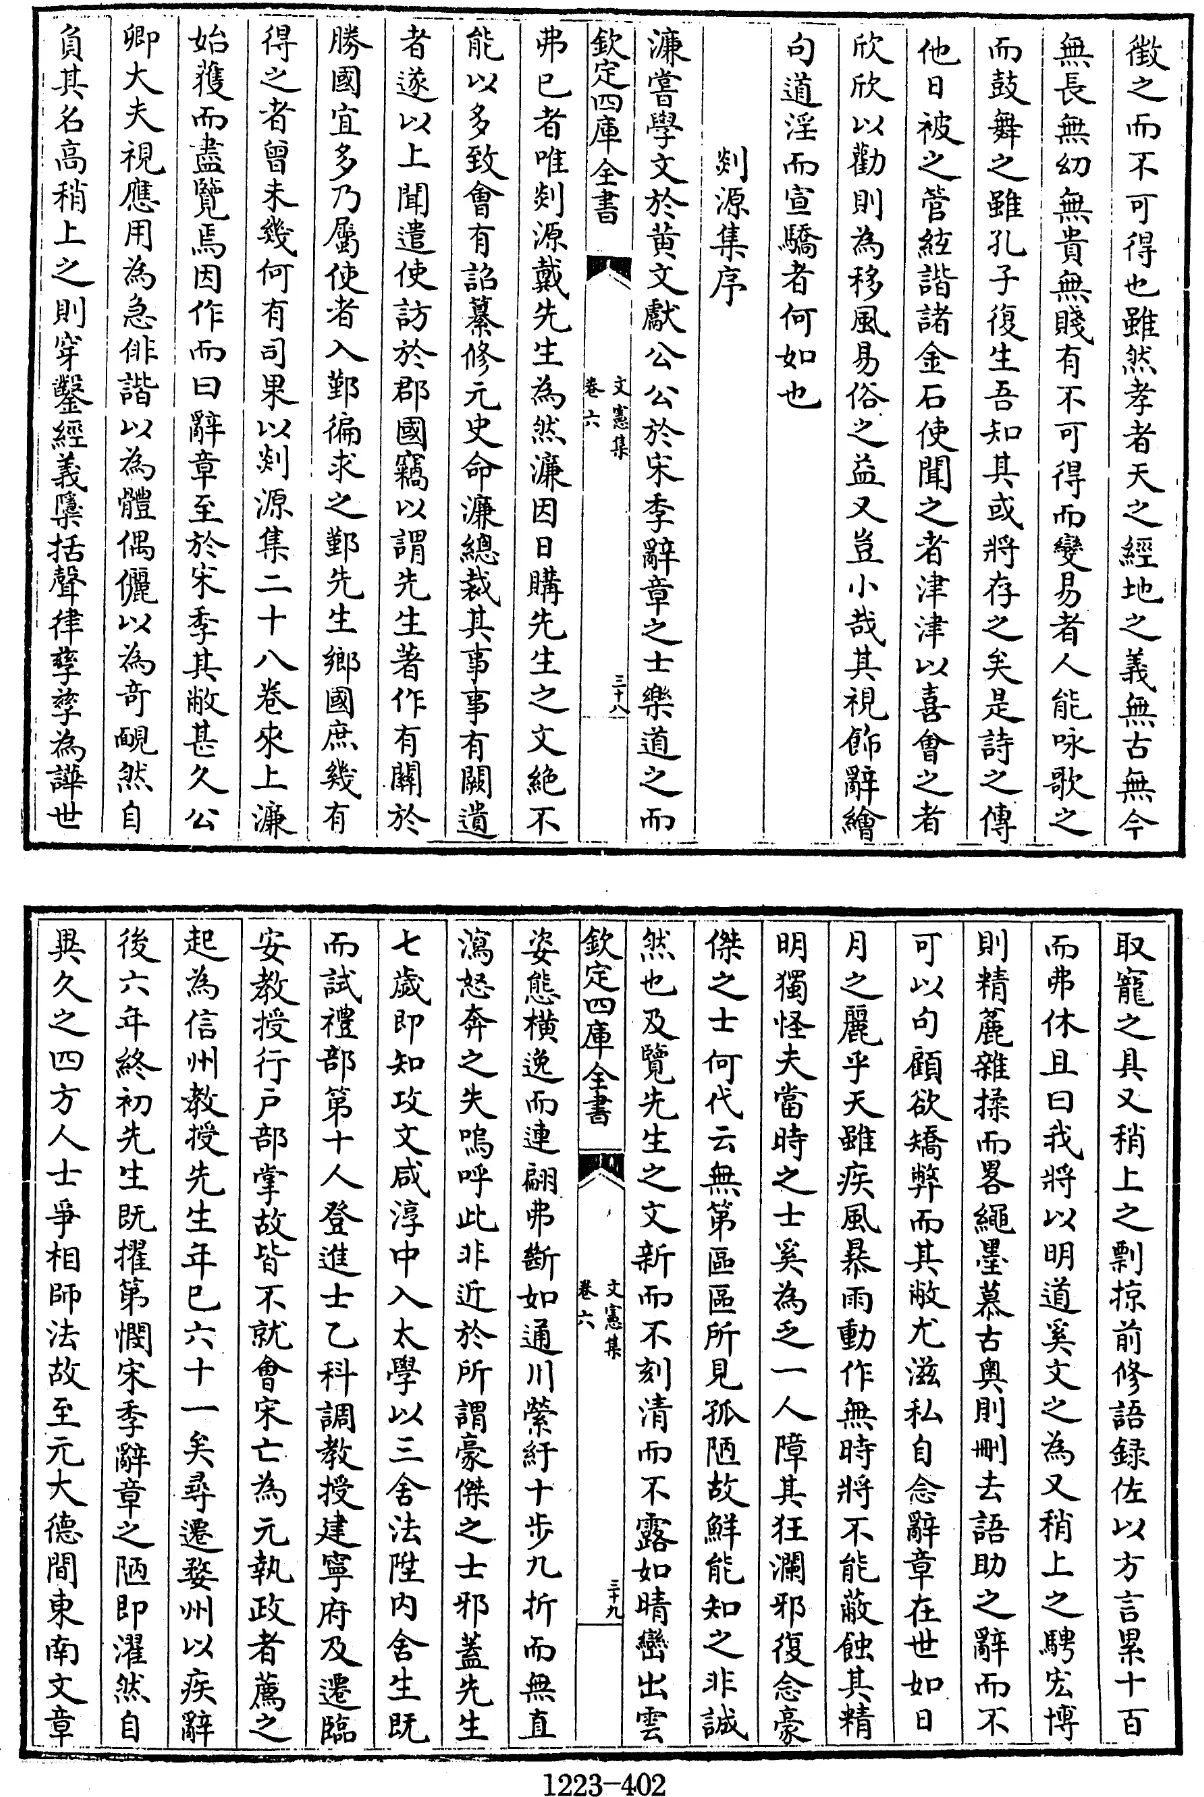 徵之而不可得也雖然孝者天之經地之義無古無今
無長無幼無貴無賤有不可得而變易者人能咏歌之
而鼓舞之雖孔子復生吾知其或將存之矣是詩之傳
他日被之管絃諧諸金石使聞之者津津以喜會之者
欣欣以勸則為移風易俗之益又豈小哉其視飾辭繪
句道淫而宣驕者何如也
剡源集序
濂嘗學文於黄文獻公公於宋季辭章之士樂道之而
欽定四庫全書
文憲集
卷六
三十八
弗已者唯剡源戴先生為然濂因日購先生之文絶不
能以多致會有詔纂修元史命濂總裁其事事有闕遺
者遂以上聞遣使訪於郡國竊以謂先生著作有關於
勝國宜多乃屬使者入鄞徧求之鄞先生鄉國庶幾有
得之者曾未幾何有司果以剡源集二十八卷來上濂
始獲而盡覽焉因作而曰辭章至於宋季其敝甚久公
卿大夫視應用為急俳諧以為體偶儷以為奇靦然自
負其名高稍上之則穿鑿經義隱括聲律孳孳為譁世
取寵之具又稍上之剽掠前修語録佐以方言累十百
而弗休且曰我將以明道奚文之為又稍上之騁宏博
則精麄雜揉而畧繩墨慕古奥則刪去語助之辭而不
可以句顧欲矯弊而其敝尤滋私自念辭章在世如日
月之麗乎天雖疾風暴雨動作無時將不能蔽蝕其精
明獨怪夫當時之士奚為乏一人障其狂瀾邪復念豪
傑之士何代云無第區區所見孤陋故鮮能知之非誠
然也及覽先生之文新而不刻清而不露如晴巒出雲
欽定四庫全書
文憲集
卷六
三十九
姿態橫逸而連翩弗斷如通川縈紆十步九折而無直
瀉怒奔之失嗚呼此非近於所謂豪傑之士邪蓋先生
七歲即知攻文咸淳中入太學以三舍法陞内舍生既
而試禮部第十人登進士乙科調教授建寧府及遷臨
安教授行户部掌故皆不就會宋亡為元執政者薦之
起為信州教授先生年已六十一矣尋遷婺州以疾辭
後六年終初先生既擢第憫宋季辭章之陋即濯然自
異久之四方人士爭相師法故至元大德間東南文章
1223-402